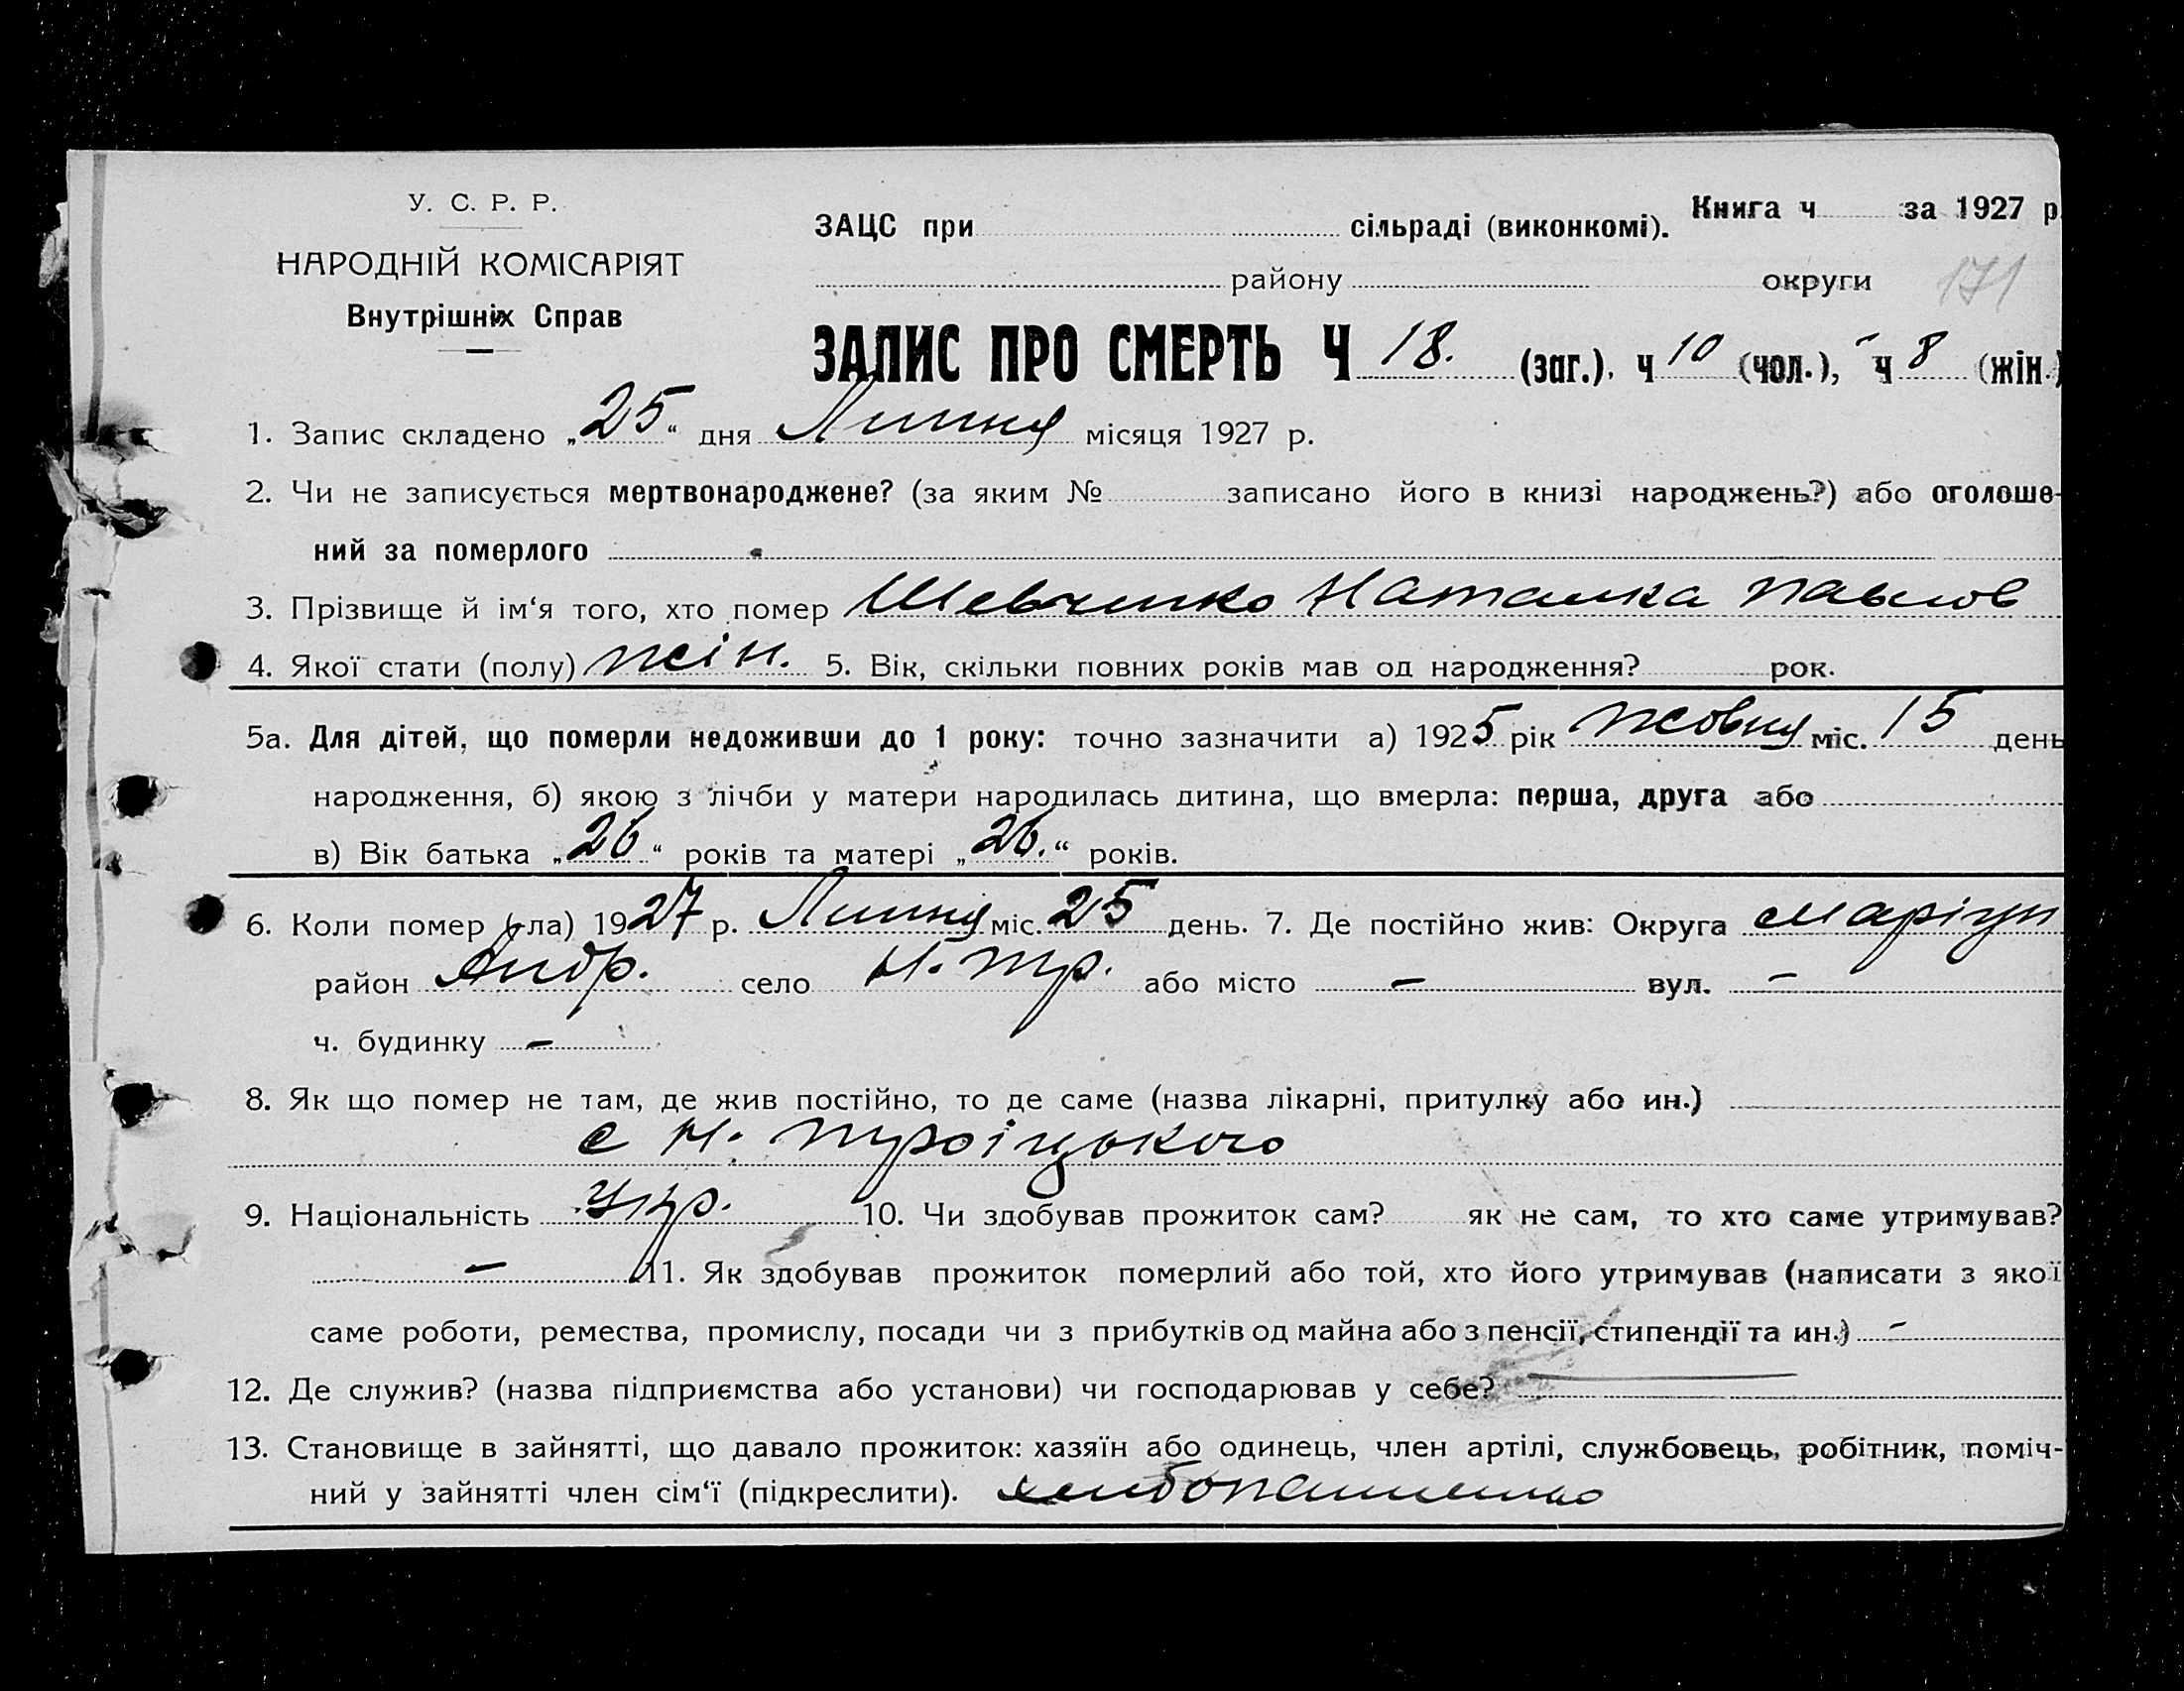 У. С. Р. Р.
НАРОДНІЙ КОМІСАРІЯТ
Внутрішніх Справ
ЗАЦС при сільраді (виконкомі). Книга ч за 1927 р.
району округи 171
ЗАПИС ПРО СМЕРТЬ Ч 18. (заг.). ч 10 (чол.), ч 8 (жін.)
1. Запис складено „25“ дня Липня місяця 1927 р.
2. Чи не записується мертвонароджене? (за яким № записано його в книзі народжень?) або оголоше-
ний за померлого
3. Прізвище й ім‘я того, хто помер Шевченко Наталка Павлов
4. Якої стати (полу) жін. 5. Вік, скільки повних років мав од народження? рок.
5а. Для дітей, що померли недоживши до 1 року: точно зазначити а) 1925 рік жовня міс. 15 день
народження, б) якою з лічби у матери народилась дитина, що вмерла: перша, друга або
в) Вік батька „26“ років та матері „26.“ років.
6. Коли помер (-ла) 1927 р. Липня міс. 25 день. 7. Де постійно жив: Округа Маріуп
район Андр. село Н. Тр. або місто – вул. –
ч. будинку –
8. Як що помер не там, де жив постійно, то де саме (назва лікарні, притулку або ин.)
с Н. Троіцького
9. Національність Укр. 10. Чи здобував прожиток сам? як не сам, то хто саме утримував?
– 11. Як здобував прожиток померлий або той, хто його утримував (написати з якої
саме роботи, ремества, промислу, посади чи з прибутків од майна або з пенсії, стипендії та ин.) –
12. Де служив? (назва підприємства або установи) чи господарював у себе?
13. Становище в зайнятті, що давало прожиток: хазяїн або одинець, член артілі, службовець, робітник, поміч-
ний у зайнятті член сім‘ї (підкреслити).